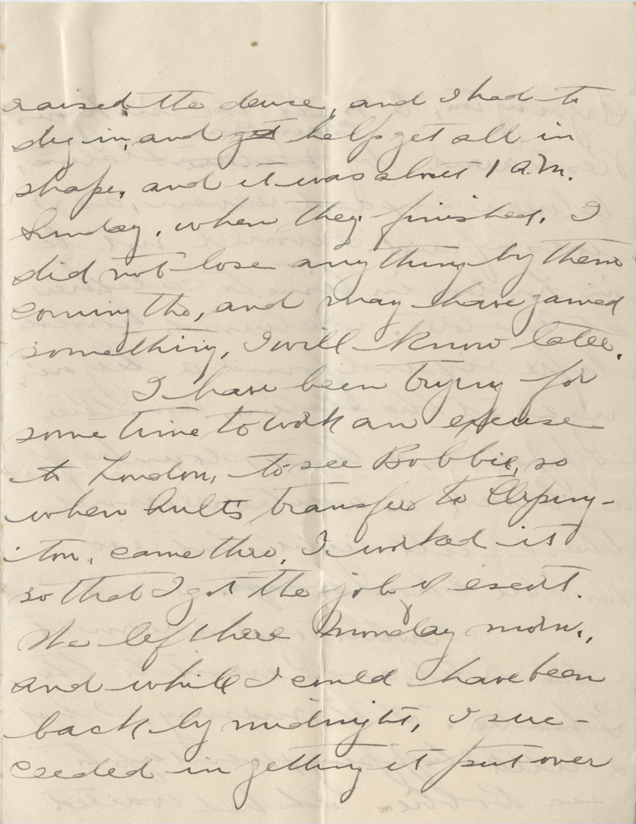 raised the deuce, and I had to
dig in, and get help get all in
shape, and it was about 1 A.M.
Sunday, when they finished. I
did not lose anything by them
coming tho, and may have gained
something, I will know later.
I have been trying for
some time to work an excuse
to London, to see Bobbie, so
when Hults transfer to Orping-
ton, came thro, I worked it
so that I got the job of escort.
We left here Monday morn.,
and while I could have been
back by midnight, I suc-
ceeded in getting it put over